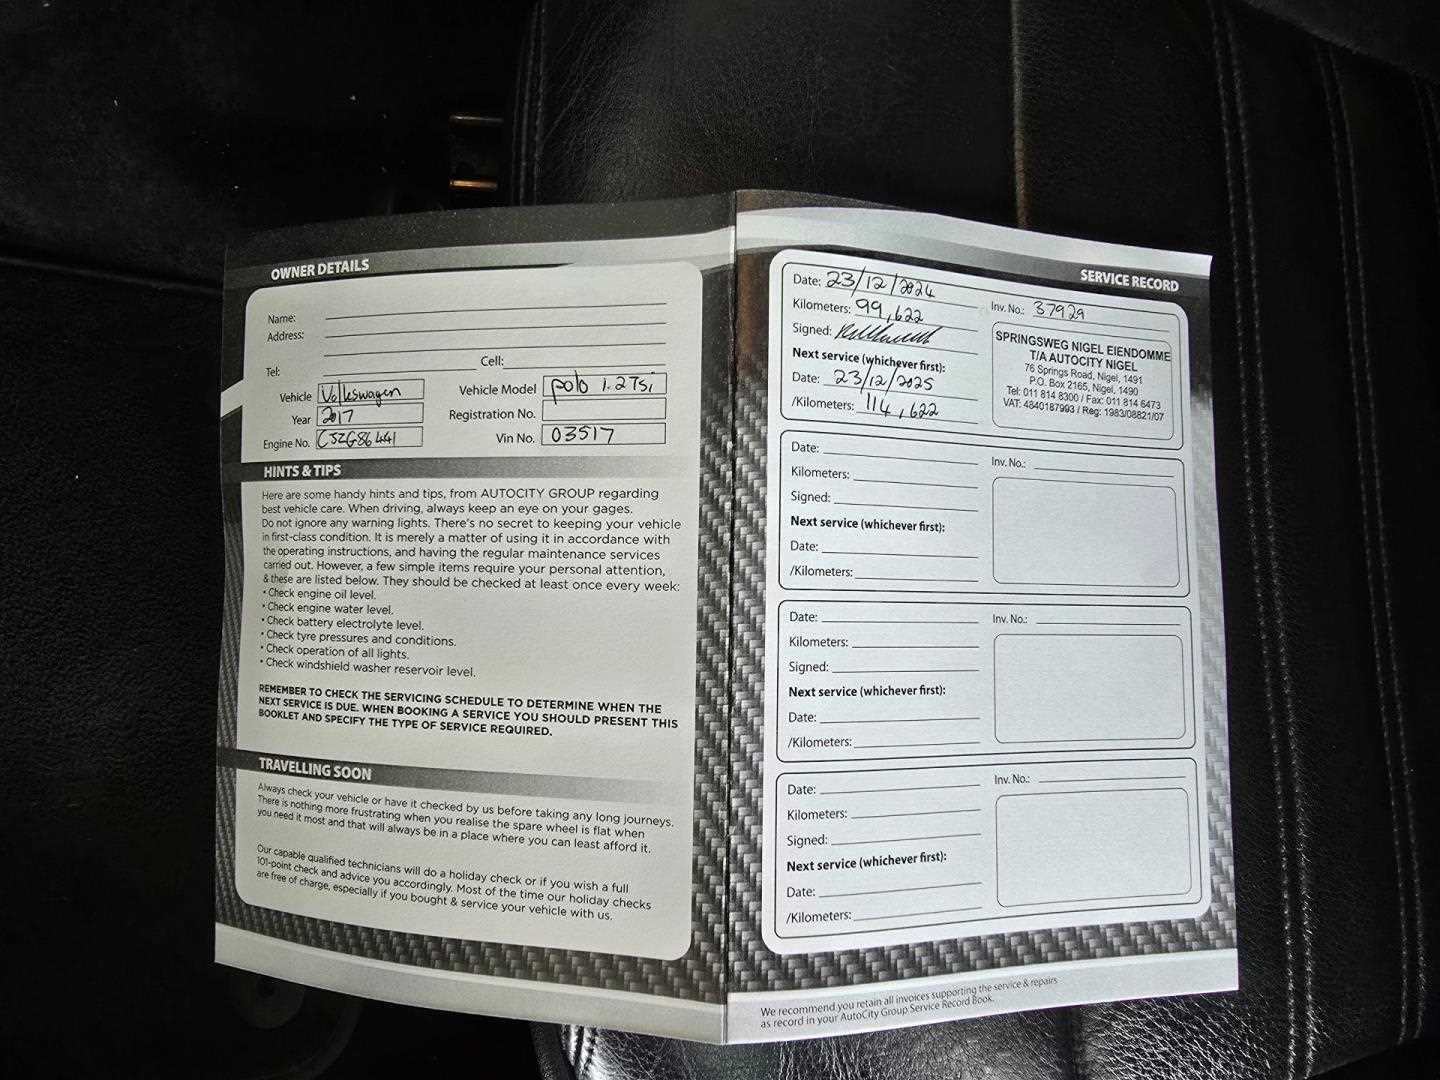 OWNER DETAILS
Name:
Address:
Tel: Cell:
Vehicle Volkswagen Vehicle Model polo 1.2Tsi
Year 2017 Registration No.
Engine No. CJZG86441 Vin No. 03517
HINTS & TIPS
Here are some handy hints and tips, from AUTOCITY GROUP regarding
best vehicle care. When driving, always keep an eye on your gages.
Do not ignore any warning lights. There's no secret to keeping your vehicle
in first-class condition. It is merely a matter of using it in accordance with
the operating instructions, and having the regular maintenance services
carried out. However, a few simple items require your personal attention,
& these are listed below. They should be checked at least once every week:
• Check engine oil level.
• Check engine water level.
• Check battery electrolyte level.
• Check tyre pressures and conditions.
• Check operation of all lights.
• Check windshield washer reservoir level.
REMEMBER TO CHECK THE SERVICING SCHEDULE TO DETERMINE WHEN THE
NEXT SERVICE IS DUE. WHEN BOOKING A SERVICE YOU SHOULD PRESENT THIS
BOOKLET AND SPECIFY THE TYPE OF SERVICE REQUIRED.
TRAVELLING SOON
Always check your vehicle or have it checked by us before taking any long journeys.
There is nothing more frustrating when you realise the spare wheel is flat when
you need it most and that will always be in a place where you can least afford it.
Our capable qualified technicians will do a holiday check or if you wish a full
101-point check and advice you accordingly. Most of the time our holiday checks
are free of charge, especially if you bought & service your vehicle with us.
SERVICE RECORD
Date: 23/12/2024
Kilometers: 99,622
Signed:
Next service (whichever first):
Date: 23/12/2025
/Kilometers: 114,622
Inv. No.: 37929
SPRINGSWEG NIGEL EIENDOMME
T/A AUTOCITY NIGEL
76 Springs Road, Nigel, 1491
P.O. Box 2165, Nigel, 1490
Tel: 011 814 8300 / Fax: 011 814 6473
VAT: 4840187993 / Reg: 1983/08821/07
Date:
Kilometers:
Signed:
Next service (whichever first):
Date:
/Kilometers:
Inv. No.:
Date:
Kilometers:
Signed:
Next service (whichever first):
Date:
/Kilometers:
Inv. No.:
Date:
Kilometers:
Signed:
Next service (whichever first):
Date:
/Kilometers:
Inv. No.:
We recommend you retain all invoices supporting the service & repairs
as record in your AutoCity Group Service Record Book.